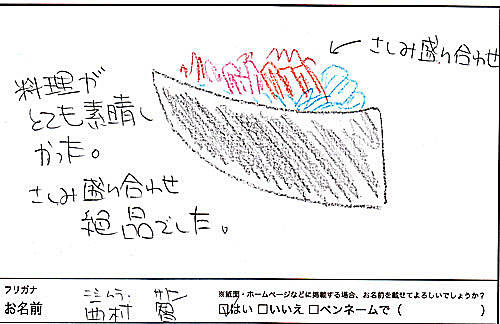 さしみ盛り合わせ
料理が
とても素晴し
かった。
さしみ盛り合わせ
絶品でした。
フリガナ
お名前
ニシムラ
西村
※紙面・ホームページなどに掲載する場合、お名前を載せてよろしいでしょうか?
☑はい □いいえ □ペンネームで ( )